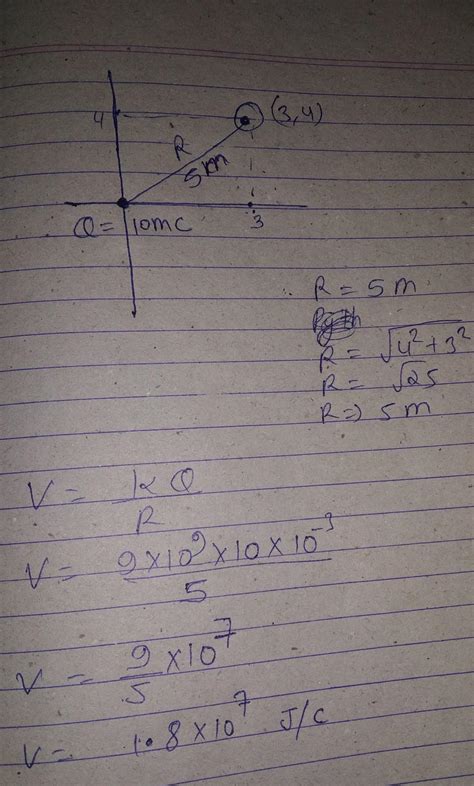 4
(3,4)
R
5m
Q = 10mC
3
R = 5m
R = √4²+3²
R = √25
R => 5m
V = kQ
R
V = 9×10⁹×10×10⁻³
5
V = 9 ×10⁷
5
V = 1.8×10⁷ J/C